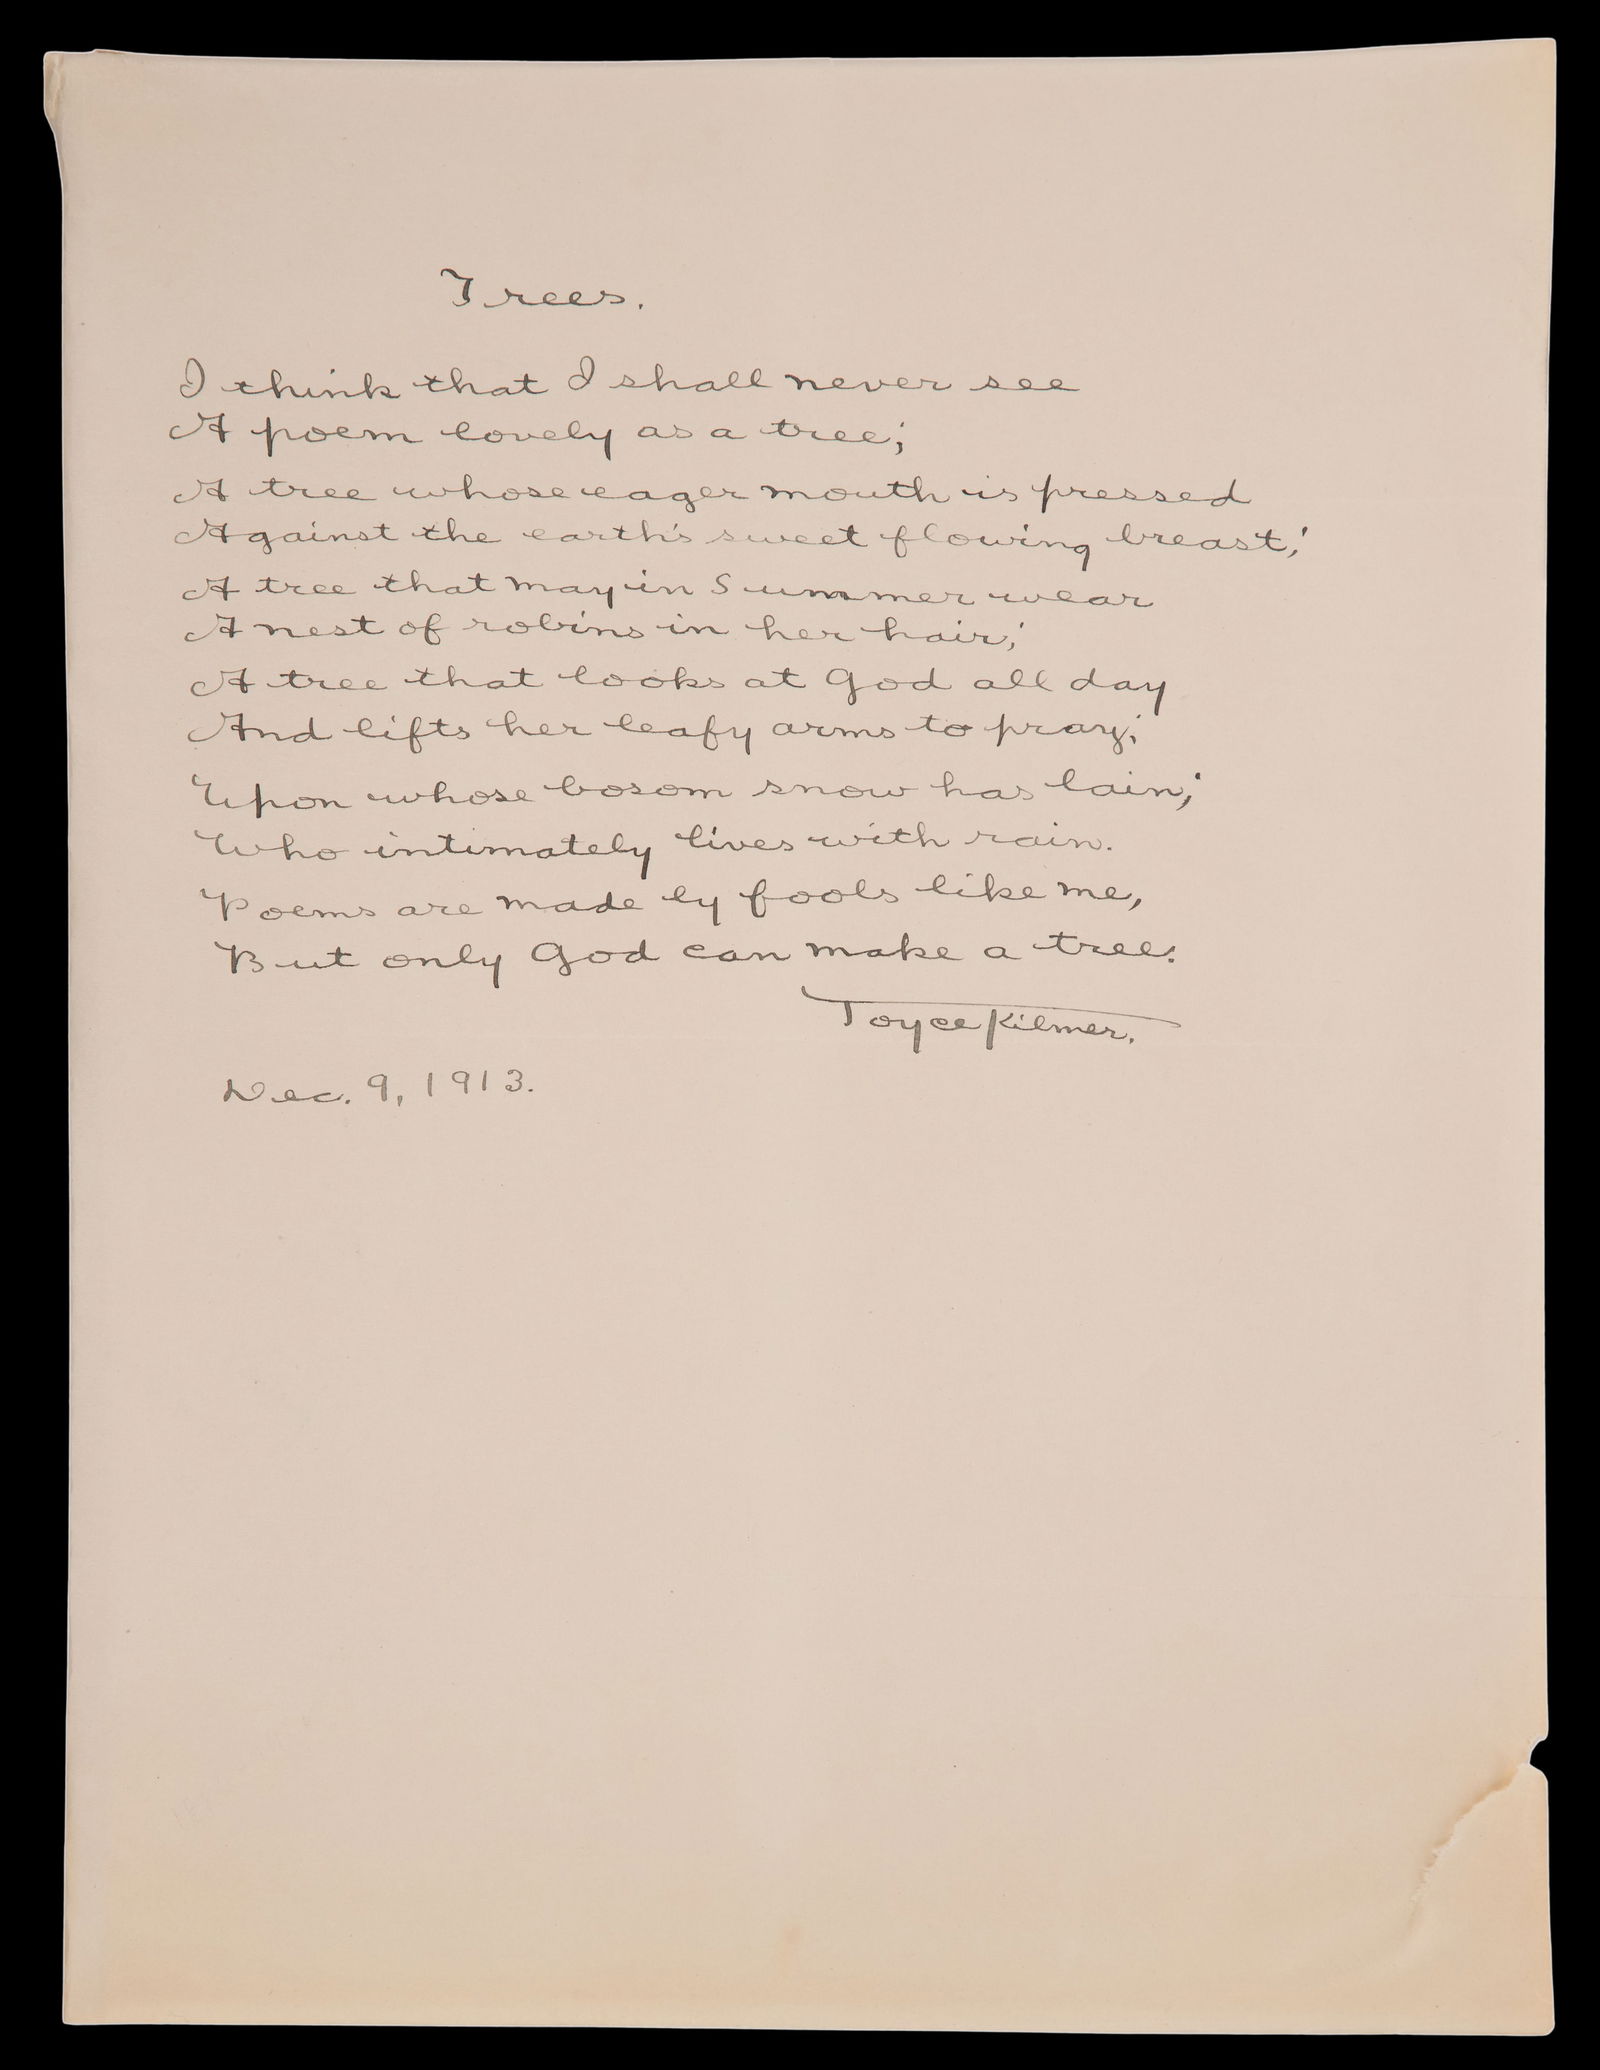 Trees.
I think that I shall never see
A poem lovely as a tree;
A tree whose eager mouth is pressed
Against the earth's sweet flowing breast;
A tree that may in Summer wear
A nest of robins in her hair;
A tree that looks at God all day
And lifts her leafy arms to pray;
Upon whose bosom snow has lain;
Who intimately lives with rain.
Poems are made by fools like me,
But only God can make a tree.
Joyce Kilmer.
Dec. 9, 1913.